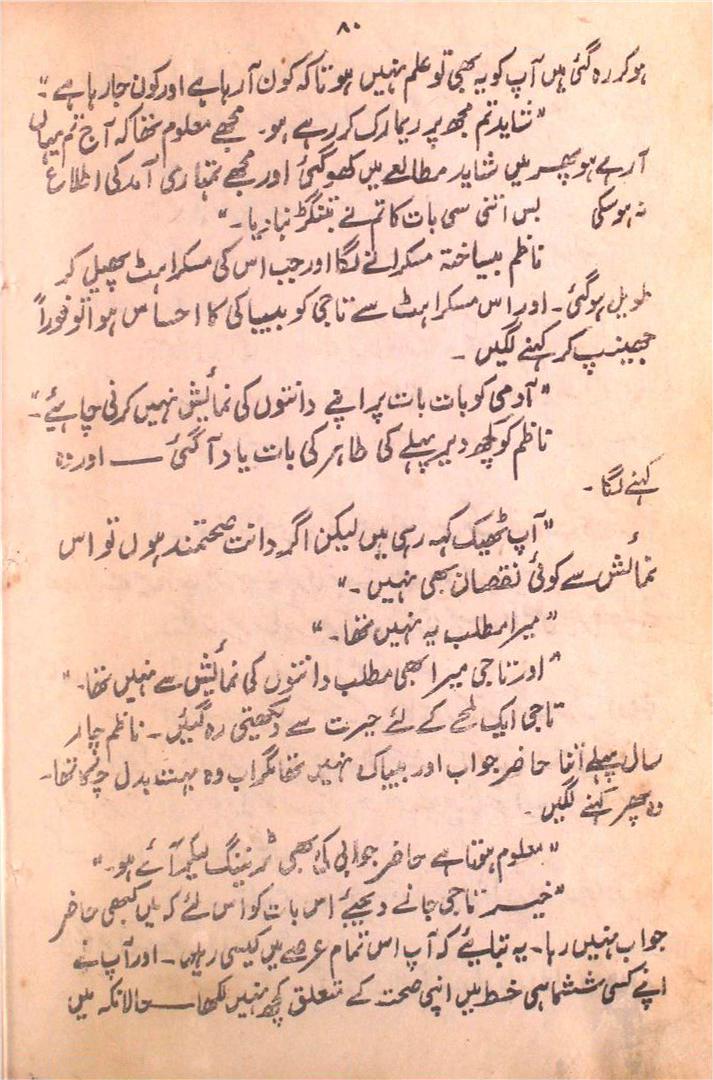 ۸۰
ہوکر رہ گئی ہیں آپ کو یہ بھی تو علم نہیں ہوتا کہ کون آ رہا ہے اور کون جا رہا ہے ۔"
"شاید تم مجھ پر ریمارک کر رہے ہو ۔ مجھے معلوم تھا کہ آج تم یہاں
آ رہے ہو پھر میں شاید مطالعے میں کھو گئی اور مجھے تمہاری آمد کی اطلاع
نہ ہو سکی بس اتنی سی بات کا تم نے بتنگڑ بنا دیا ۔"
ناظم بیساختہ مسکرانے لگا اور جب اس کی مسکراہٹ پھیل کر
طویل ہو گئی ۔ اور اس مسکراہٹ سے تاجی کو بیباکی کا احساس ہوا تو فوراً
جھینپ کر کہنے لگیں ۔
"آدمی کو بات بات پر اپنے دانتوں کی نمائیش نہیں کرنی چاہیئے ۔"
ناظم کو کچھ دیر پہلے کی طاہر کی بات یاد آ گئی — اور وہ
کہنے لگا ۔
"آپ ٹھیک کہہ رہی ہیں لیکن اگر دانت صحتمند ہوں تو اس
نمائش سے کوئی نقصان بھی نہیں ۔"
"میرا مطلب یہ نہیں تھا ۔"
"اور تاجی میرا بھی مطلب دانتوں کی نمائیش سے نہیں تھا ۔"
تاجی ایک لمحے کے لئے حیرت سے دیکھتی رہ گئیں ۔ ناظم چار
سال پہلے اتنا حاضر جواب اور بیباک نہیں تھا مگر اب وہ بہت بدل چکا تھا ۔
وہ پھر کہنے لگیں ۔
"معلوم ہوتا ہے حاضر جوابی کی بھی ٹریننگ لیکر آئے ہو ۔"
"خیر تاجی جانے دیجیئے اس بات کو اس لئے کہ میں کبھی حاضر
جواب نہیں رہا ۔ یہ بتایئے کہ آپ اس تمام عرصے میں کیسی رہیں ۔ اور آپ نے
اپنے کسی ششماہی خط میں اپنی صحت کے متعلق کچھ نہیں لکھا — حالانکہ میں